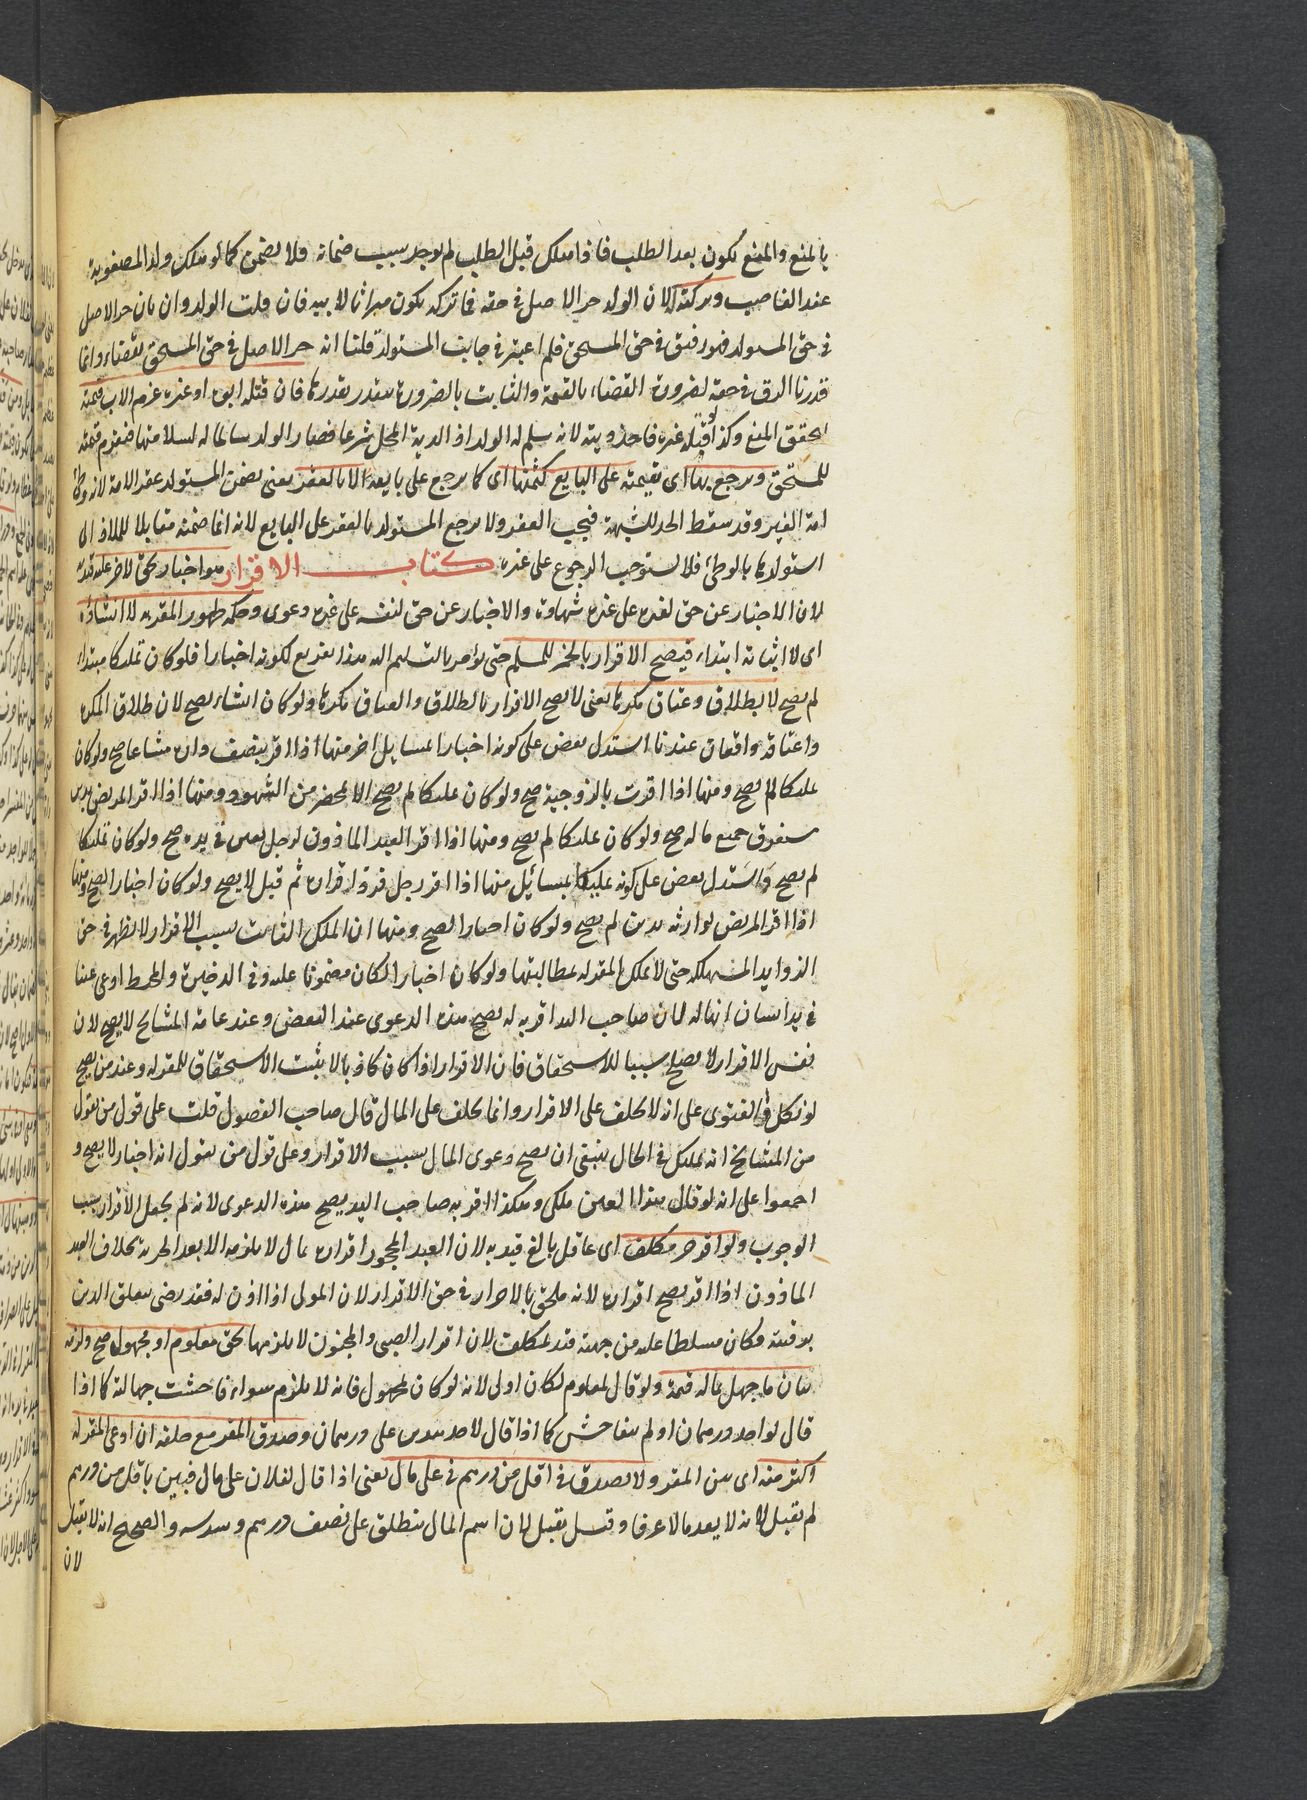 بالمنع والمنع يكون بعد الطلب فاذا هلك قبل الطلب لم يوجد سبب ضمانه فلا يضمن كما لو هلك ولد المغصوبة
عند الغاصب وتركته له لان الولد حر الاصل في حقه فما تركه يكون ميراثا لابيه فان قلت الولد وان كان حر الاصل
في حق المستولد فهو رقيق في حق المستحق فلم اعتبر في جانب المستولد قلنا انه حر الاصل في حق المستحق قضاء وانما
قدرنا الرق في حقه لضرورة القضاء بالقيمة والثابت بالضرورة يتقدر بقدرها فان قتله ابوه او غيره غرم الاب قيمته
لتحقق المنع وكذا لو قتله غيره فاخذ ديته لانه سلم له الولد اذ الدية المحل شرعا فصار الولد سالما له لسلامتها فيغرم قيمته
للمستحق ويرجع بها اى بقيمته على البايع كثمنها اى كما يرجع على بايعه لا بالعقر يعنى يضمن المستولد عقر الامة لانه وطئ
امة الغير وقد سقط الحد للشبهة فيجب العقر ولا يرجع المستولد بالعقر على البايع لانه انما ضمنه مقابلا للملاذ التى
استوفاها بالوطئ فلا يستوجب الرجوع على غيره كتاب الاقرار هو اخبار بحق لاخر عليه قيد به
لان الاخبار عن حق لغيره على غيره شهادة والاخبار عن حق لنفسه على غيره دعوى وحكمه ظهور المقر به لا انشاؤه
اى لا اثباته ابتداء فيصح الاقرار بالخمر للمسلم حتى يؤمر بالتسليم اليه هذا تفريع لكونه اخبارا فلو كان تمليكا مبتداء
لم يصح لا بطلاق وعتاق مكرها يعنى لا يصح الاقرار بالطلاق والعتاق مكرها ولو كان انشاء يصح لان طلاق المكره
واعتاقه واقعان عندنا استدل بعض على كونه اخبارا بمسايل اخر منها اذا اقر بنصف داره مشاعا صح ولو كان
تمليكا لم يصح ومنها اذا اقرت بالزوجية صح ولو كان تمليكا لم يصح الا بمحضر من الشهود ومنها اذا اقر المريض بدين
مستغرق جميع ماله صح ولو كان تمليكا لم يصح ومنها اذا اقر العبد الماذون لرجل بعين في يده صح ولو كان تمليكا
لم يصح واستدل بعض على كونه تمليكا بمسائل منها اذا اقر رجل فرد اقراره ثم قبل لا يصح ولو كان اخبارا لصح ومنها
اذا اقر المريض لوارثه بدين لم يصح ولو كان اخبارا لصح ومنها ان الملك الثابت بسبب الاقرار لا يظهر في حق
الزوايد المستهلكة حتى لا يملك المقر له مطالبتها ولو كان اخبارا لكان مضمونا عليه وفي الذخيرة والمحيط ادعى عينا
في يد انسان انها له لان صاحب اليد اقر به له يصح هذه الدعوى عند البعض وعند عامة المشايخ لا يصح لان
نفس الاقرار لا يصلح سببا للاستحقاق فان الاقرار اذا كان كاذبا لا يثبت الاستحقاق للمقر له وعند من يصح
لو نكل والفتوى على انه لا يحلف على الاقرار وانما يحلف على المال قال صاحب الفصول قلت على قول من يقول
من المشايخ انه تمليك في الحال ينبغى ان يصح دعوى المال بسبب الاقرار وعلى قول من يقول انه اخبار لا يصح و
اجمعوا على انه لو قال هذا العين ملكى وهكذا اقر به صاحب اليد يصح هذه الدعوى لانه لم يجعل الاقرار سبب
الوجوب ولو اقر حر مكلف اى عاقل بالغ قيد به لان العبد المحجور اقراره بمال لا يلزمه الا بعد الحرية بخلاف العبد
الماذون اذا اقر يصح اقراره لانه ملحق بالاحرار في حق الاقرار لان المولى اذا اذن له فقد رضى بتعلق الدين
برقبته فكان مسلطا عليه من جهته قيد بمكلف لان اقرار الصبى والمجنون لا يلزمهما بحق معلوم او مجهول صح ولزمه
بيان ما جهل بماله قيمة ولو قال لمعلوم لكان اولى لانه لو كان لمجهول فانه لا يلزم سواء فاحشت جهالته كما اذا
قال لواحد درهمان او لم يتفاحش كما اذا قال لاحد هذين على درهمان وصدق المقر مع حلفه ان ادعى المقر له
اكثر منه اى من المقر ولا يصدق في اقل من درهم في على مال يعنى اذا قال لفلان على مال فبين باقل من درهم
لم يقبل لانه لا يعد مالا عرفا وقيل يقبل لان اسم المال ينطلق على نصف درهم وسدسه والصحيح انه لا يقبل
لان